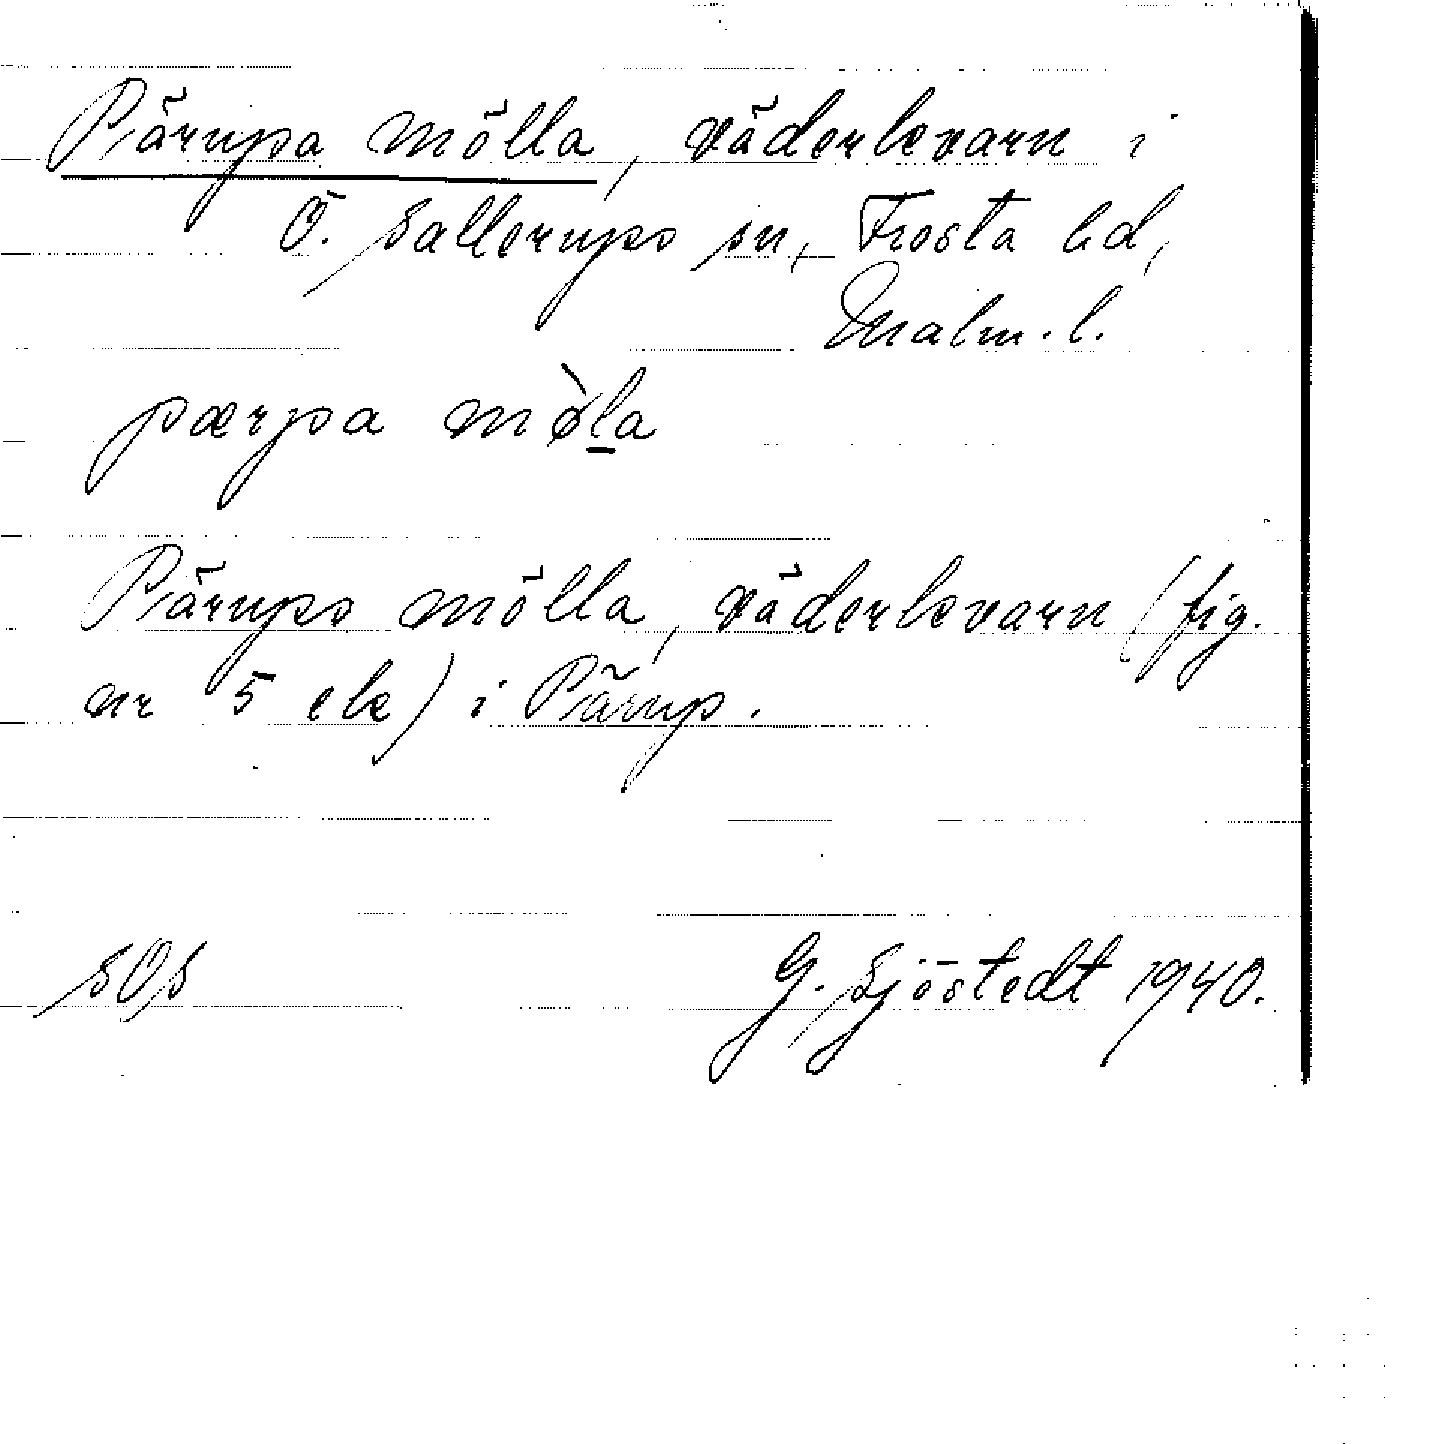 Pärupa mölla, väderkvarn i
Ö. Sallerups sn, Frosta hd,
Malm. l.
pærpa mø̀la
Pärups mölla, väderkvarn (fig.
nr 5 ek) i Pärup.
SOS G. Sjöstedt 1940.